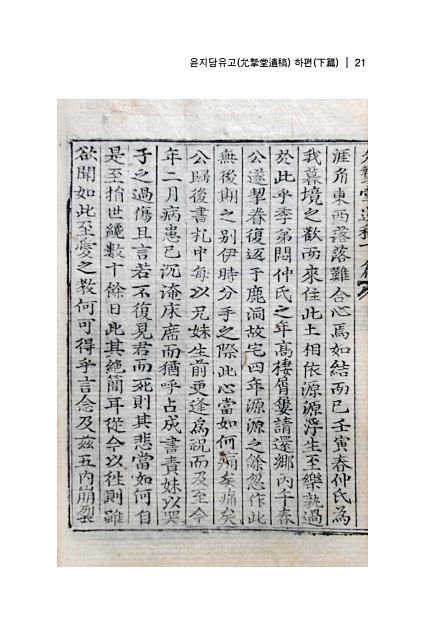 윤지당유고(允摯堂遺稿) 하편(下篇) | 21
允摯堂遺稿下篇
涯角東西落落難合心焉如結而已壬寅春仲氏爲
我暮境之歡而來住此土相依源源浮生至樂孰過
於此乎季弟悶仲氏之年高棲屑屢請還鄉丙午春
公遂挈眷復返于鹿洞故宅四年源源之餘忽作此
無後期之別伊時分手之際此心當如何痛矣痛矣
公歸後書札中每以兄妹生前更逢爲祝而及至今
年二月病患已沉淹床席而猶呼占成書責妹以哭
子之過傷且言若不復見君而死則其悲當如何自
是至捐世纔數十餘日此其絶簡耳從今以往則雖
欲聞如此至愛之敎何可得乎言念及玆五內崩裂